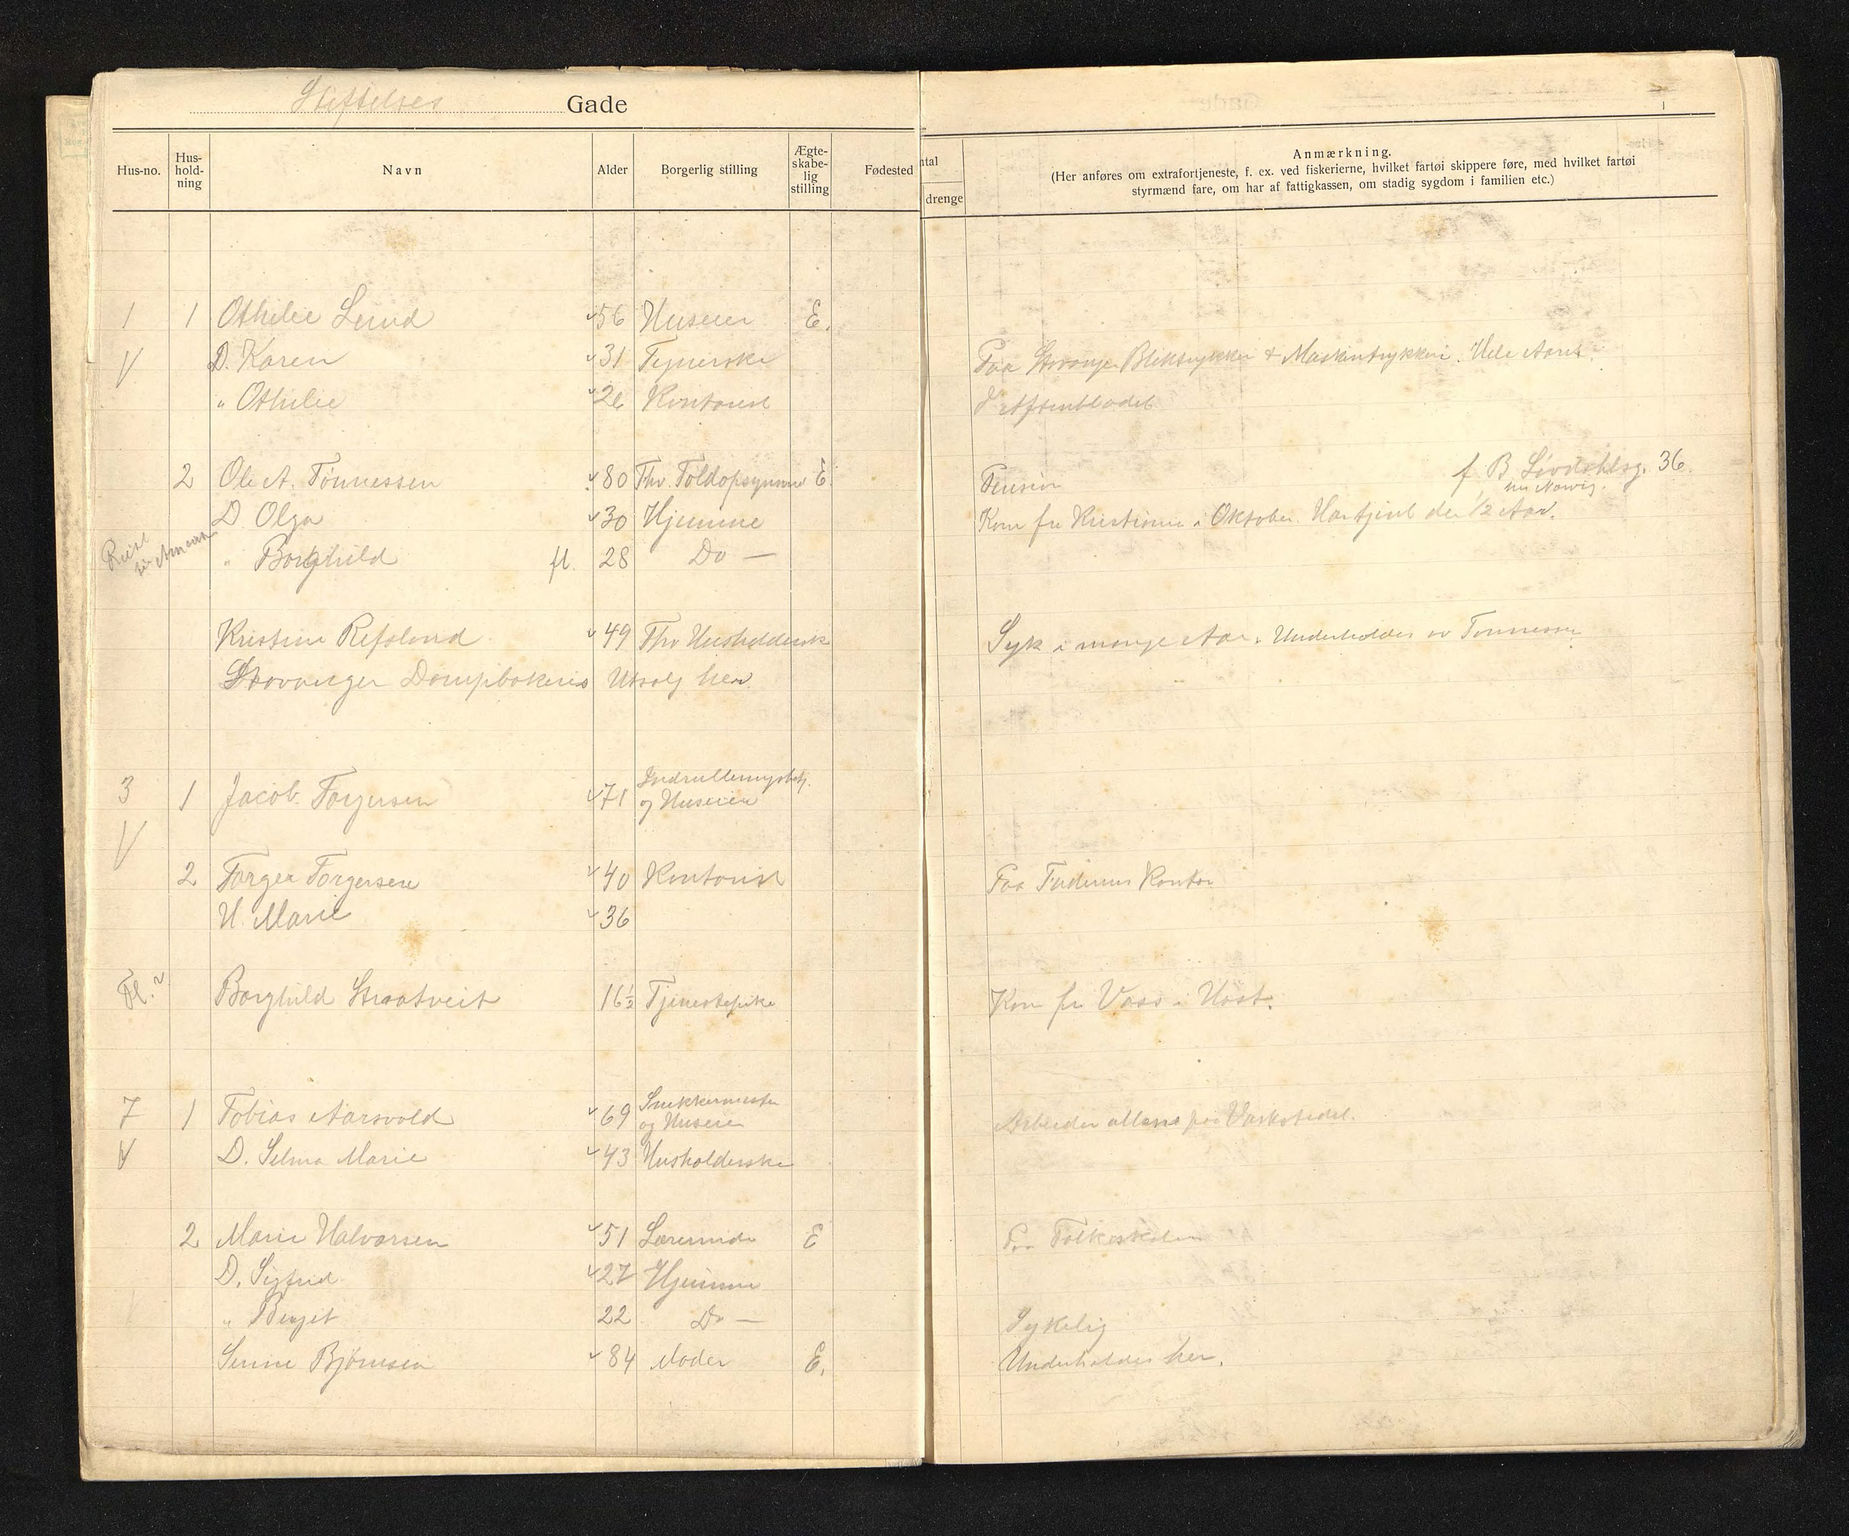 Stiftelses Gade
Hus-no. Hus-hold-ning Navn Alder Borgerlig stilling Ægte-skabe-lig stilling Fødested
ntal drenge
Anmærkning.
(Her anføres om extrafortjeneste, f. ex. ved fiskerierne, hvilket fartøi skippere føre, med hvilket fartøi
styrmænd fare, om har af fattigkassen, om stadig sygdom i familien etc.)
1 1 Othilie Lund 56 Huseier E.
D. Karen 31 Tegnerske Paa Stavanger Bliktrykkeri & Maskintrykkeri. Hele Aaret.
" Othilie 26 Kontorist I Aftenbladet
2 Ole A. Tønnessen 80 Thv. Toldopsynsm E. Pension f B. 36.
D. Olga 30 Hjemme Kom fra Kristiania i Oktober. Har tjent der 1/2 Aar.
" Borghild fl. 28 Do —
Reist til Amerika
Kristine Refsland 49 Thv Husholderske Syk i mange Aar. Underholdes av Tønnessen
Stavanger Dampbakeris Utsalg her.
3 1 Jacob Torgersen 71 og Huseier
2 Torger Torgersen 40 Kontorist Paa Kontor
H. Marie 36
Fl. Borghild Straatveit 16½ Tjenestepike Kom fra Voss i Høst.
7 1 Tobias Aarsvold 69 Snekkermester og Huseier Arbeider paa Verkstedet.
D. Selma Marie 43 Husholderske
2 Marie Halvorsen 51 Lærerinde E Paa Folkeskolen
D. Sigfrid 27 Hjemme
" Berget 22 Do — Sykelig
Bjørnsen 84 Moder E. Underholdes her.